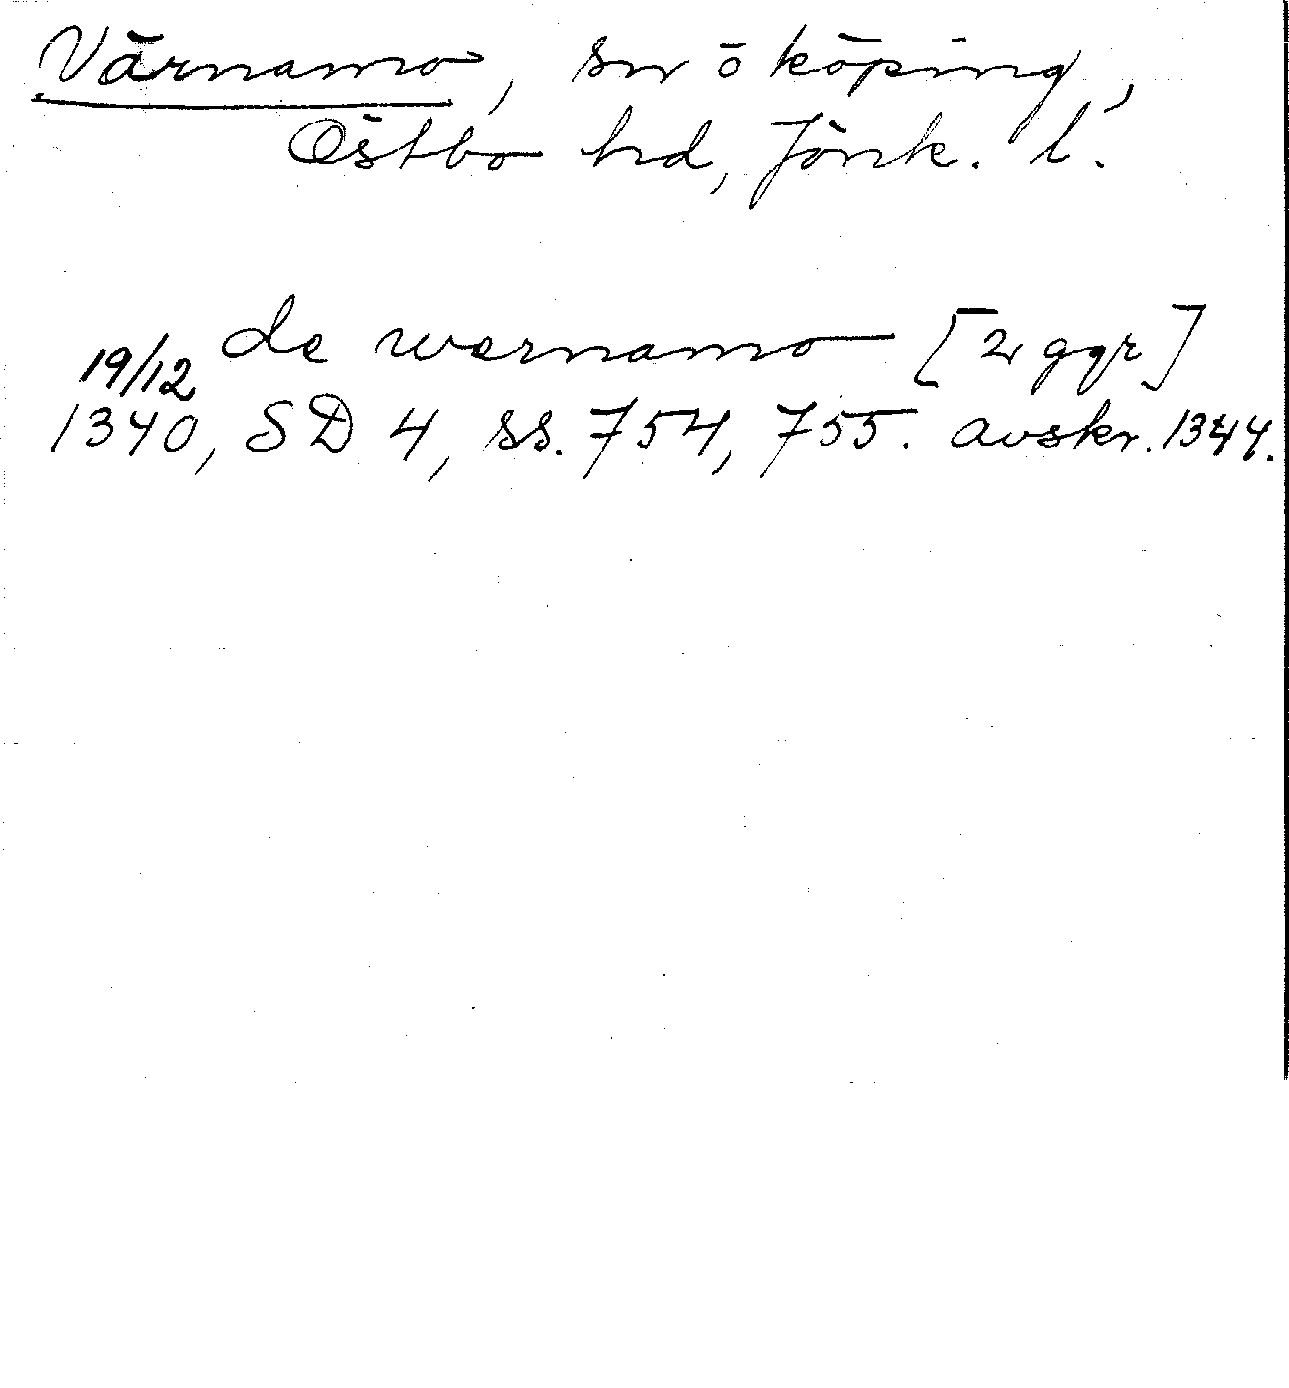 Värnamo, sn ö köping,
Östbo hd, Jönk. l.
de wernamo [2 ggr]
19/12
1340, SD 4, ss. 754, 755. avskr. 1344.